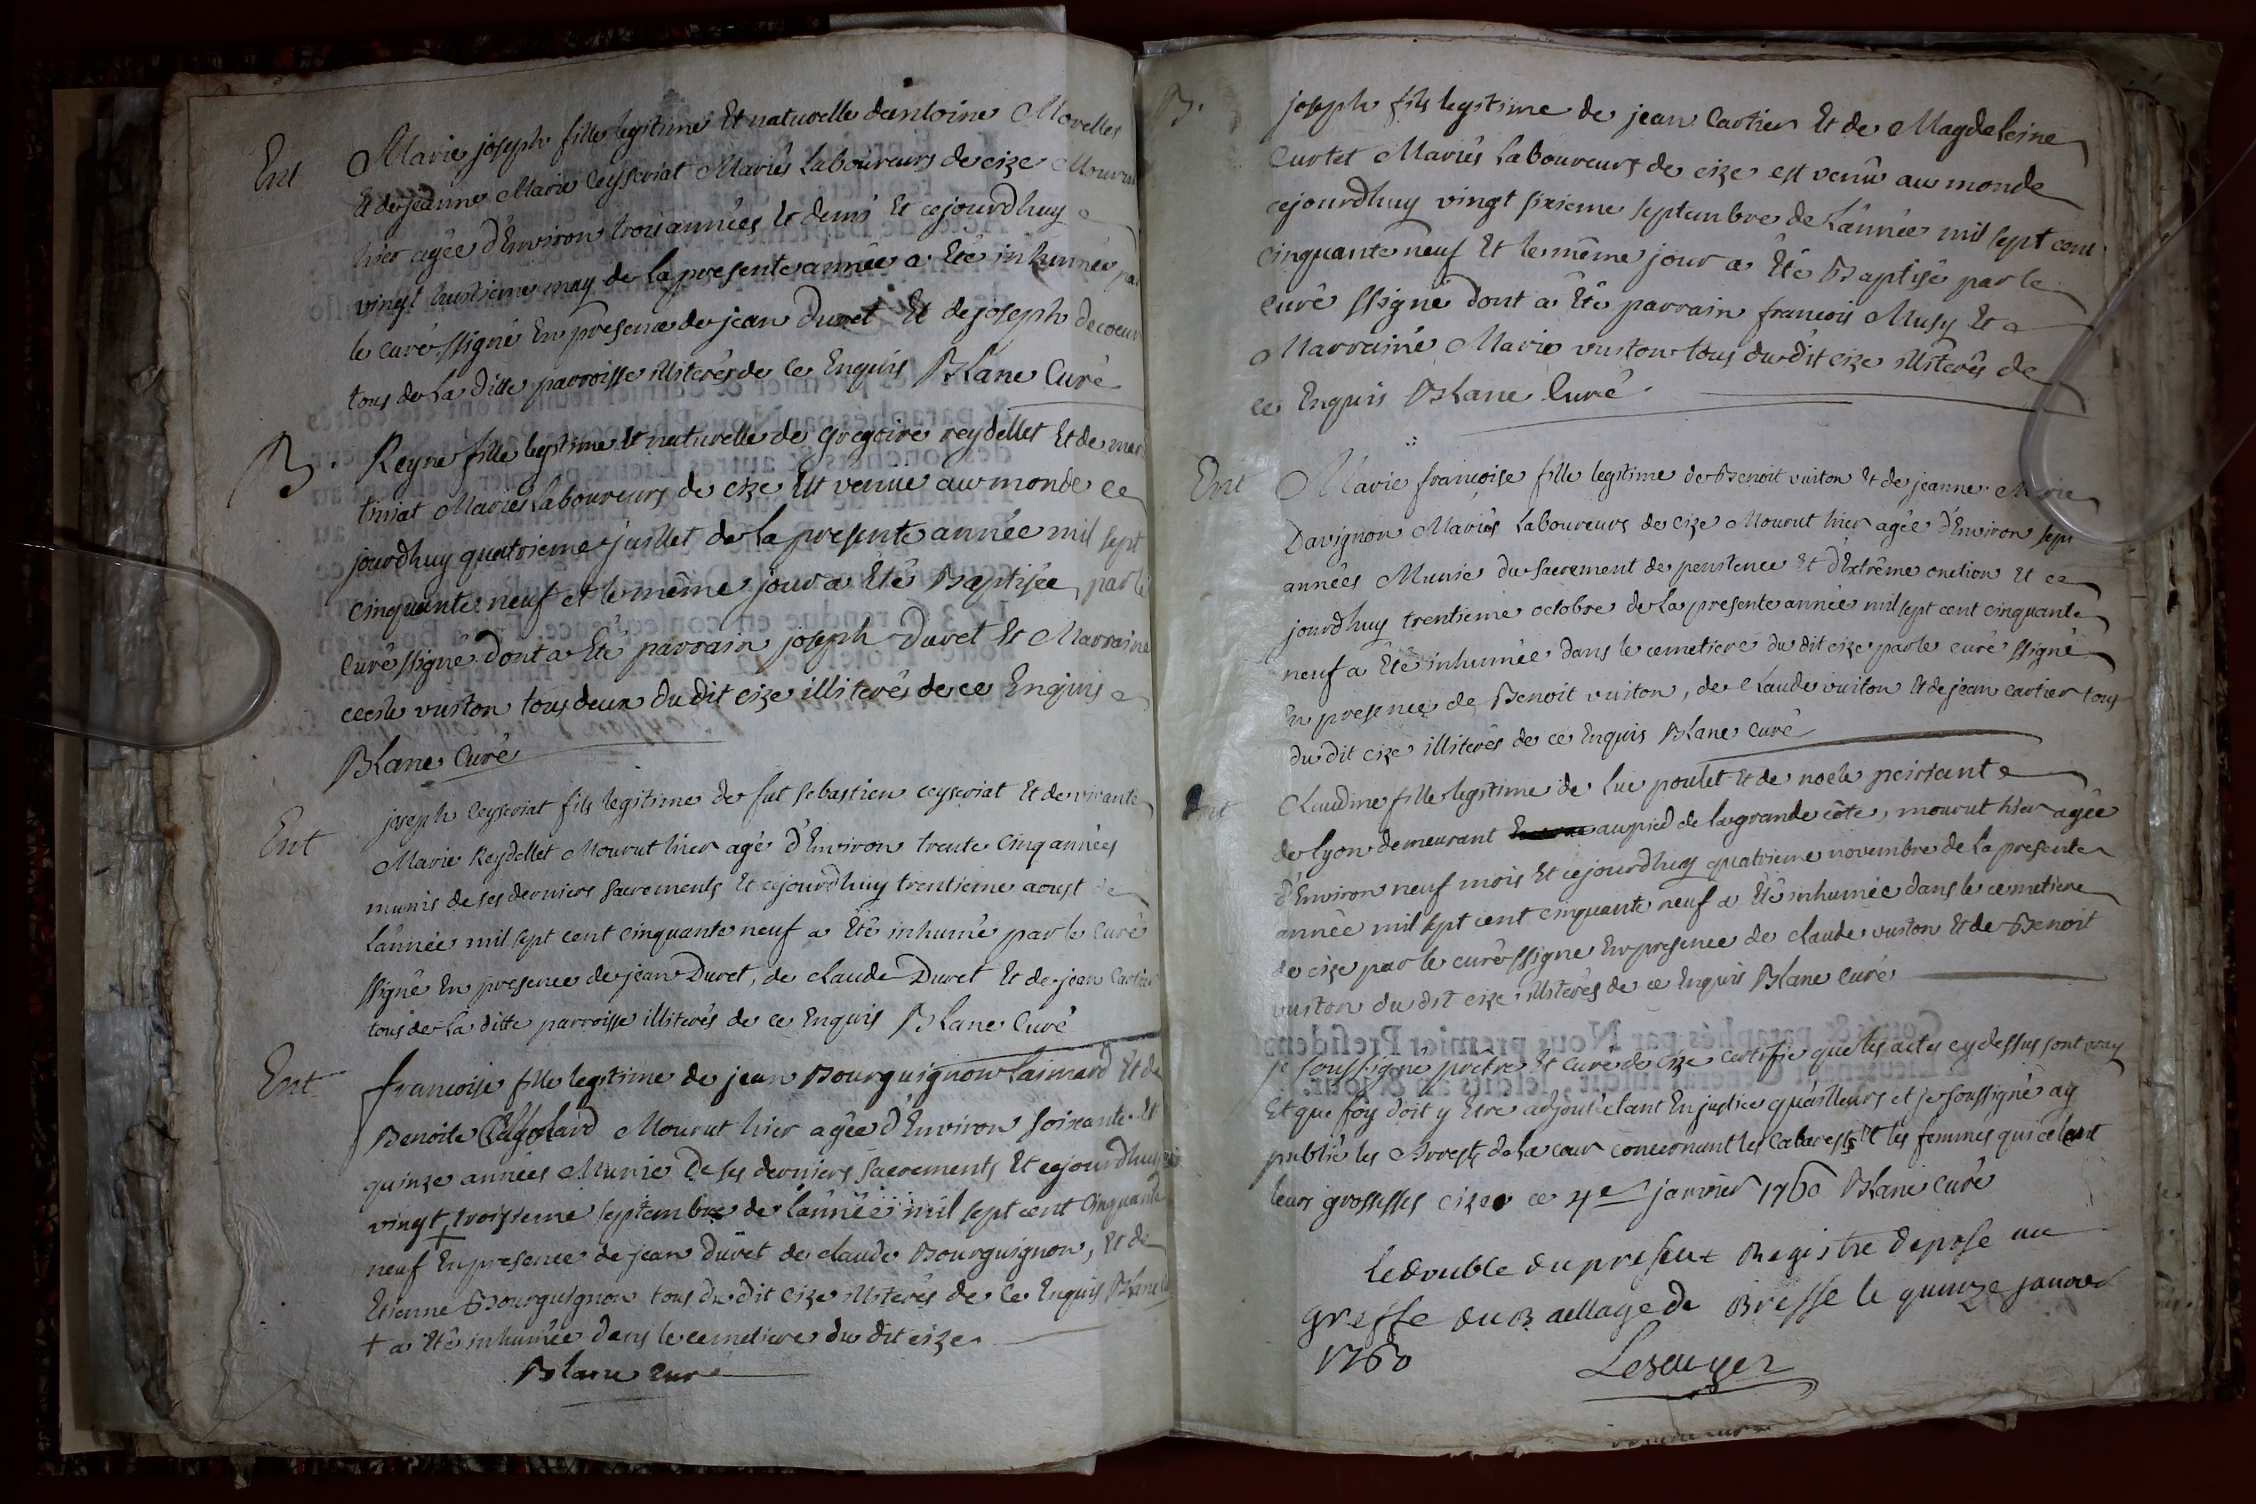 Ent
Marie joseph fille legitime Et naturelle dantoine Morelles
Et de jeanne Marie Ceyseriat Mariés Laboureurs de cize Mourut
hier agée d'Environ trois années Et demi Et cejourdhuy
vingt huitieme may de la presente année a Eté inhumée par
le curé ssigné En presence de jean Duret Et de joseph decoeur
tous de La ditte parroisse illiterés de Ce Enquis Blanc Curé
B.
Reyne fille legitime Et naturelle de gregoire reydellet Et de
Mariés Laboureurs de cize Est venue au monde ce
jourdhuy quatrieme juillet de La presente année mil sept
cinquante neuf et le même jour a Eté Baptisée par le
Curé ssigné dont a Eté parrain joseph Duret Et Marraine
cecile vuiton tous deux du dit cize illiterés de ce Enquis
Blanc Curé
Ent
joseph Ceyseriat fils legitime de fut sebastien ceyseriat Et de vivante
Marie Reydellet Mourut hier agé d'Environ trente Cinq années
munis de ses derniers sacrements Et cejourdhuy trentieme aoust de
L'année mil sept cent cinquante neuf a Eté inhumé par le Curé
ssigné En presence de jean Duret, de claude Duret Et de jean Cartier
tous de La ditte parroisse illiterés de ce Enquis Blanc Curé
Ent
francoise fille legitime de jean Bourguignon Laimard Et de
Benoite Mourut hier agée d'Environ soixante Et
quinze années Munie De ses derniers sacrements Et cejourdhuy
vingt troisieme septembre de L'année mil sept cent Cinquante
neuf + En presence de jean duret de claude Bourguignon, Et de
Etienne Bourguignon tous du dit Cize illiterés de Ce Enquis Blanc
+ a Eté inhumée dans le cemetiere du dit cize
Blanc Curé
B.
joseph fils legitime de jean Cartier Et de Magdeleine
Curtet Mariés Laboureurs de cize est venu au monde
cejourdhuy vingt sixieme septembre de L'année mil sept cent
Cinquante neuf Et le même jour a Eté Baptisé par le
Curé ssigné dont a Eté parrain francois Musy Et
Marraine Marie vuiton tous du dit cize illiterés de
ce Enquis Blanc Curé
Ent
Marie francoise fille legitime de Benoit vuiton Et de jeanne Marie
Davignon Mariés Laboureurs de Cize Mourut hier agée d'Environ sept
années Munie du sacrement de penitence Et d'Extrême onction Et ce
jourdhuy trentieme octobre de La presente année mil sept cent cinquante
neuf a Eté inhumée dans le cemetiere du dit cize par le curé ssigné
En presence de Benoit vuiton, de claude vuiton Et de jean cartier tous
du dit cize illiterés de ce Enquis Blanc Curé
Ent
Claudine fille legitime de Luc poulet Et de noele
de lyon demeurant au pied de la grande côte, mourut hier agée
d'Environ neuf mois Et cejourdhuy quatrieme novembre de La presente
année mil sept cent cinquante neuf a Eté inhumée dans le cemetiere
de cize par le curé ssigné En presence de claude vuiton Et de Benoit
vuiton du dit cize illiterés de ce Enquis Blanc Curé
je soussigné prêtre Et Curé de cize certifie que les actes cy dessus sont vray
Et que foy doit y Etre adjouté tant En justice qu'ailleurs et je soussigné ay
publié les Arrests de La cour concernant les Cabarests Et les femmes qui celent
leurs grossesses cize ce 4e janvier 1760 Blanc curé
Le double du present Registre depose au
greffe du Baillage de Bresse le quinze janvier
1760